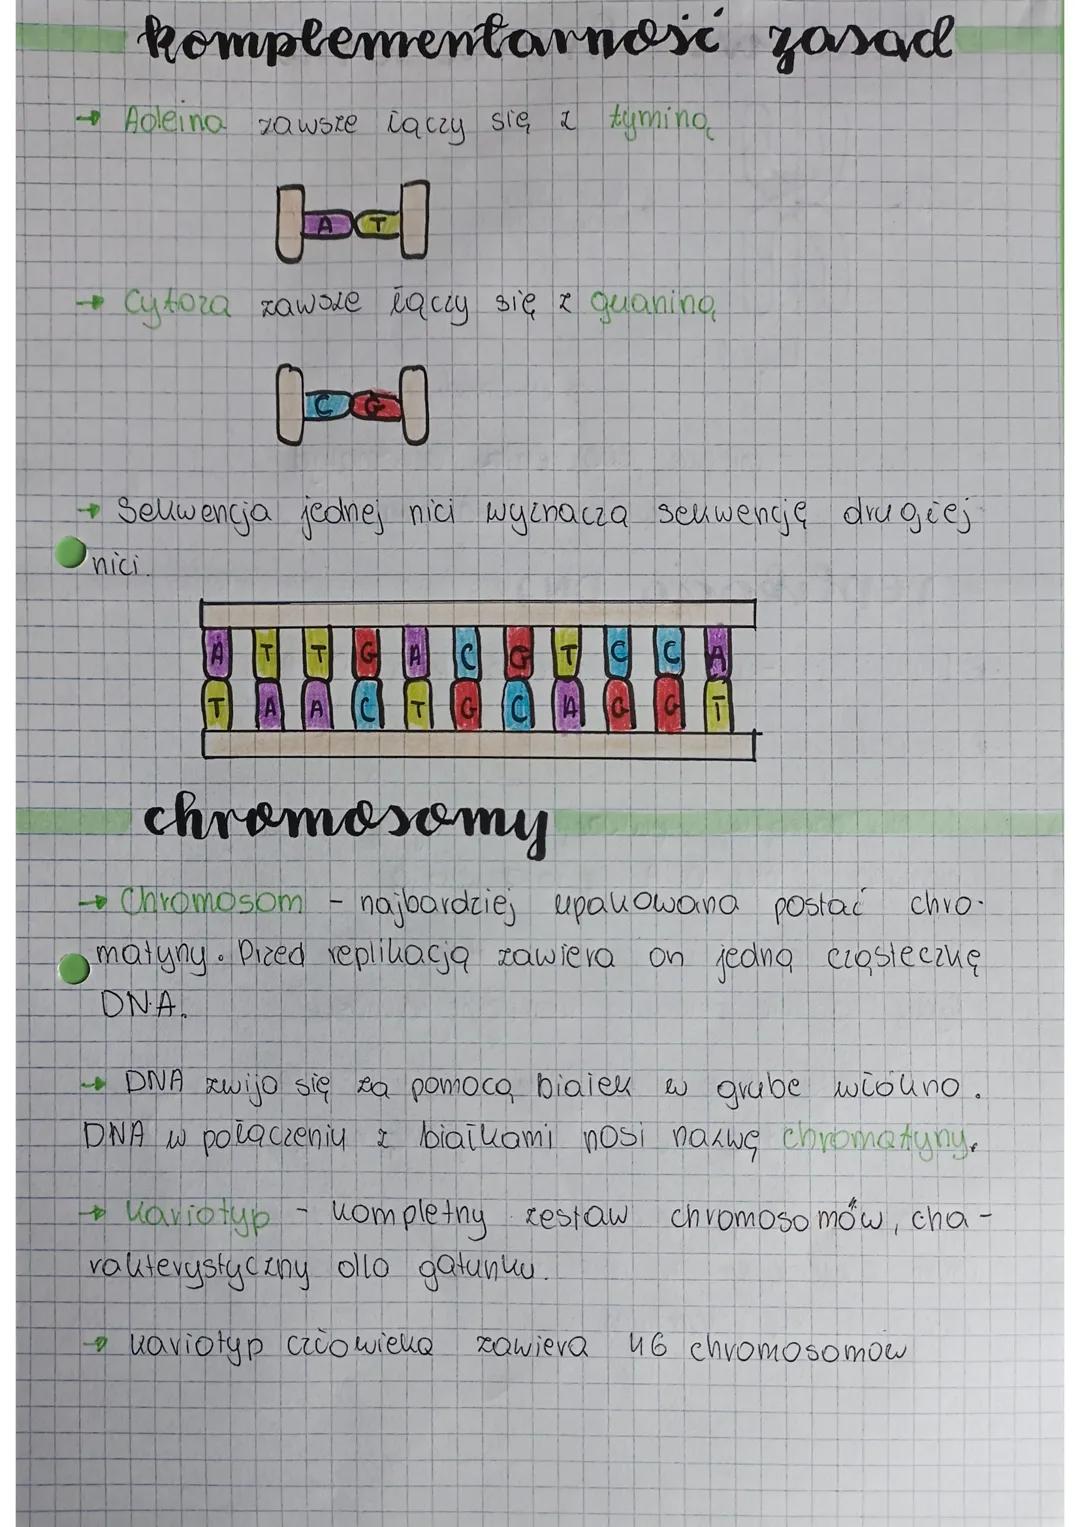 komplementarność zasad
→ Adeina zawsze łączy się z tyminą
A T
→ Cytoza zawsze łączy się z guaniną
C G
→ Sekwencja jednej nici wyznacza sekwencję drugiej
nici.
A T T G A C G T C C A
T A A C T G C A G G T
chromosomy
→ Chromosom - najbardziej upakowana postać chro-
matyny. Przed replikacją zawiera on jedną cząsteczkę
DNA.
→ DNA zwija się za pomocą białek w grube włókno.
DNA w połączeniu z białkami nosi nazwę chromatyny.
→ Kariotyp - kompletny zestaw chromosomów, cha-
rakterystyczny dla gatunku.
→ kariotyp człowieka zawiera 46 chromosomow